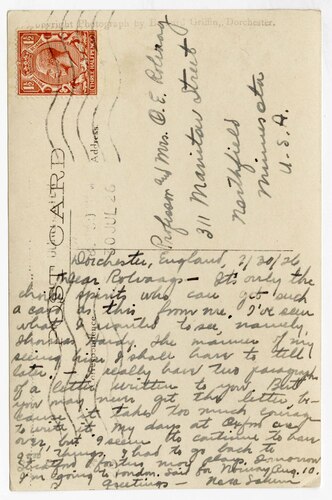 Copyright Photograph by Griffin, Dorchester.
POST CARD
Correspondence
Address
30 JUL 26
Professor and Mrs. O. E. Rolvaag
311 Manitou Street
Northfield
Minnesota
U.S.A.
Dorchester, England, 7/30/26
Dear Rolvaags - It's only the
choice spirits who can get such
a card as this from me. I've seen
what I wanted to see, namely,
Thomas Hardy. The manner of my
seeing him I shall have to tell
later. I really have two paragraphs
of a letter written to you. But
you may never get this letter, be-
cause it takes too much courage
to write it. My days at Oxford are
over, but I seem to continue to have
good things. I had to go back to
Stratford for two more plays. Tomorrow
I'm going to London. Sail for Norway Aug. 10.
Greetings -